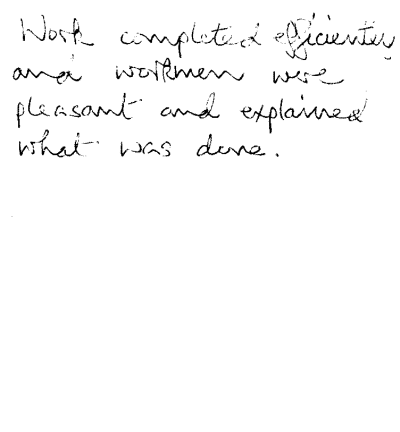 Work completed efficiently
and workmen were
pleasant and explained
what was done.